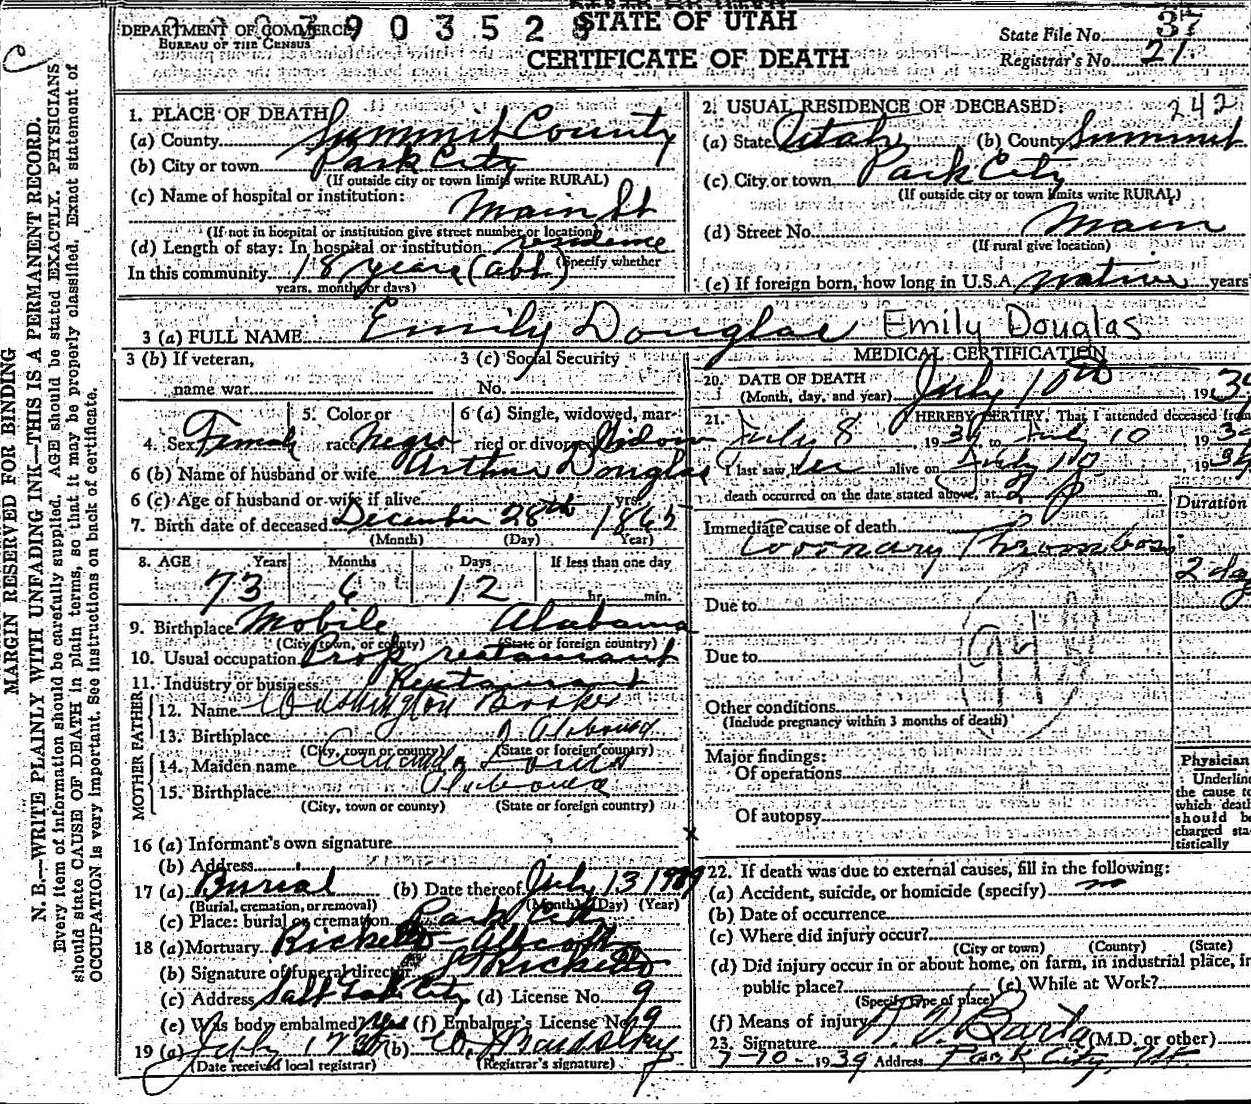 DEPARTMENT OF COMMERCE
BUREAU OF THE CENSUS
903528
STATE OF UTAH
CERTIFICATE OF DEATH
State File No. 37
Registrar's No. 21
MARGIN RESERVED FOR BINDING
N. B.—WRITE PLAINLY WITH UNFADING INK—THIS IS A PERMANENT RECORD.
Every item of information should be carefully supplied. AGE should be stated EXACTLY. PHYSICIANS
should state CAUSE OF DEATH in plain terms, so that it may be properly classified. Exact statement of
OCCUPATION is very important. See instructions on back of certificate.
1. PLACE OF DEATH
(a) County Summit County
(b) City or town Park City
(If outside city or town limits write RURAL)
(c) Name of hospital or institution:
Main St
(If not in hospital or institution give street number or location)
(d) Length of stay: In hospital or institution residence
(Specify whether
In this community 18 years (abt)
years, months or days)
2. USUAL RESIDENCE OF DECEASED: 242
(a) State Utah (b) County Summit
(c) City or town Park City
(If outside city or town limits write RURAL)
(d) Street No. Main
(If rural give location)
(e) If foreign born, how long in U.S.A. native years
3 (a) FULL NAME Emily Douglas Emily Douglas
3 (b) If veteran,
name war
3 (c) Social Security
No.
4. Sex Female
5. Color or
race Negro
6 (a) Single, widowed, mar-
ried or divorced Widow
6 (b) Name of husband or wife Arthur Douglas
6 (c) Age of husband or wife if alive yrs.
7. Birth date of deceased December 28th 1865
(Month) (Day) Year)
8. AGE Years Months Days If less than one day
73 6 12 hr. min.
9. Birthplace Mobile Alabama
(City, town, or county) (State or foreign country)
10. Usual occupation Prop restaurant
11. Industry or business Restaurant
FATHER
12. Name Washington Booker
13. Birthplace Alabama
(City, town or county) (State or foreign country)
MOTHER
14. Maiden name
15. Birthplace Alabama
(City, town or county) (State or foreign country)
16 (a) Informant's own signature
(b) Address
17 (a) Burial (b) Date thereof July 13 1939
(Burial, cremation, or removal) (Month) (Day) (Year)
(c) Place: burial or cremation Park City
18 (a) Mortuary Ricketts
(b) Signature of funeral director Ricketts
(c) Address Salt Lake City (d) License No. 9
(e) Was body embalmed? Yes (f) Embalmer's License No. 9
19 (a) July (b)
(Date received local registrar) (Registrar's signature)
MEDICAL CERTIFICATION
20. DATE OF DEATH
(Month, day, and year) July 10th, 193
21. I HEREBY CERTIFY, That I attended deceased from
July 8, 1939, to July 10, 193
I last saw her alive on July 10, 1939
death occurred on the date stated above, at 2 p m.
Duration
Immediate cause of death
Coronary Thrombosis
2 dy
Due to
Due to
94
Other conditions
(Include pregnancy within 3 months of death)
Major findings:
Of operations
Of autopsy
Physician
Underline
the cause to
which death
should be
charged sta-
tistically
x
22. If death was due to external causes, fill in the following:
(a) Accident, suicide, or homicide (specify) no
(b) Date of occurrence
(c) Where did injury occur?
(City or town) (County) (State)
(d) Did injury occur in or about home, on farm, in industrial place, in
public place? (e) While at Work?
(Specify type of place)
(f) Means of injury
23. Signature (M.D. or other)
7-10-1939 Address Park City, Ut.